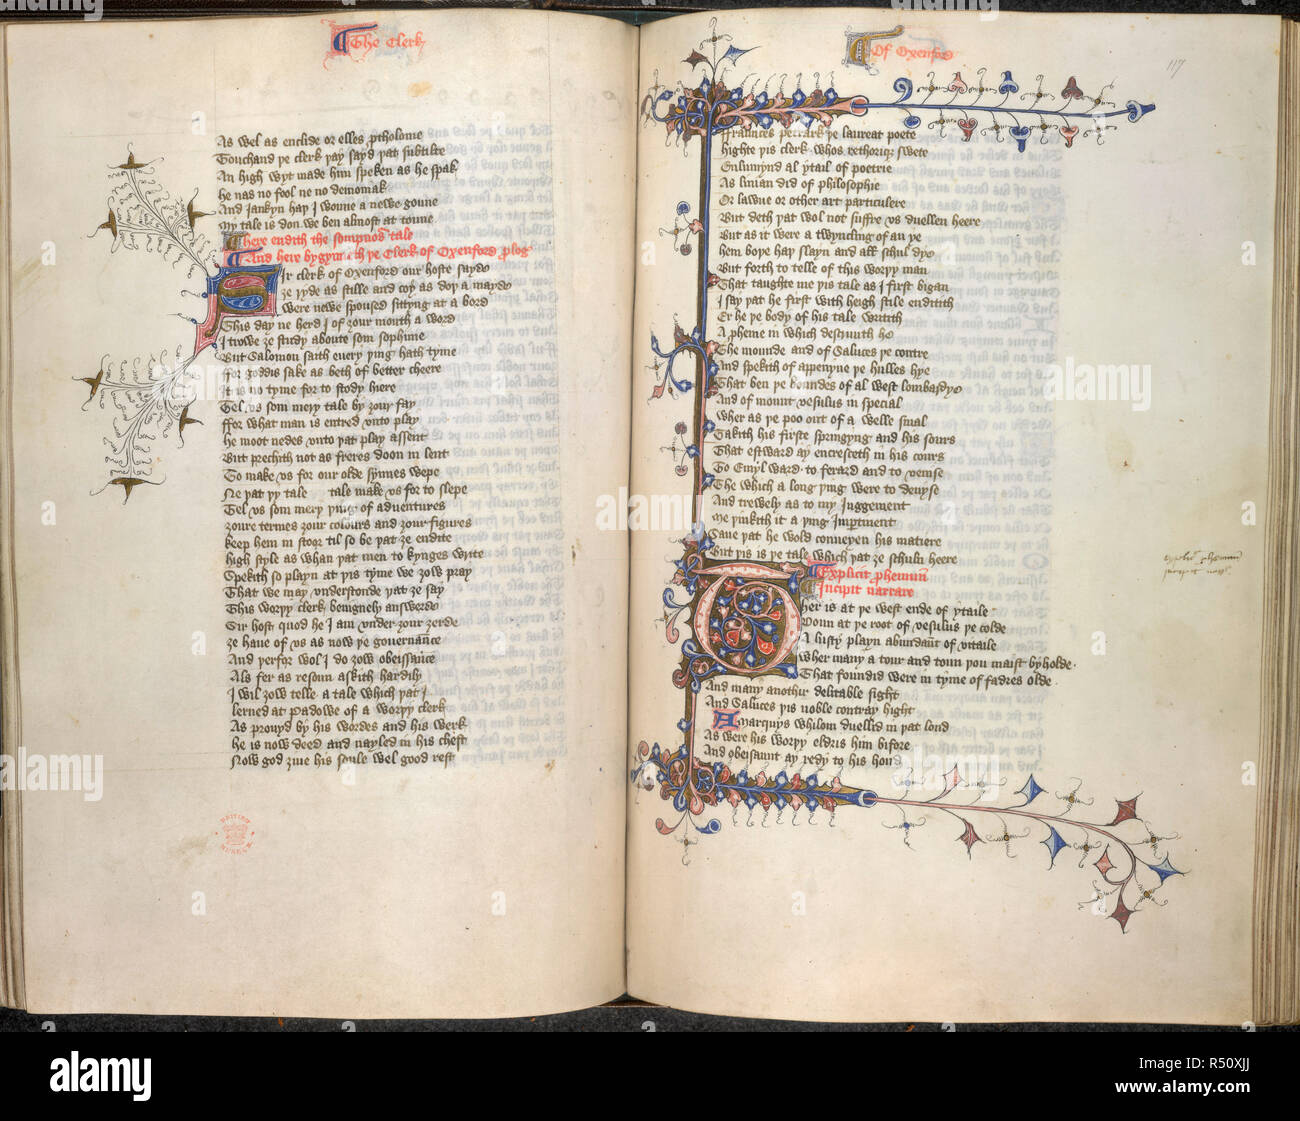 The Clerk
As wel as euclide or elles ptholome
Touchand þe clerk þay sayd þat subtilte
An high wyt made him speken as he spak
he nas no fool ne no demoniak
And Iankyn haþ I wonne a newe goune
My tale is don we ben almost at toune
here endith the sompnoͬs tale
And here bygynneth þe Clerk of Oxenford plog
Sir clerk of Oxenford our hoste sayde
ȝe ryde as stille and coy as doþ a mayde
were newe spoused sittyng at a bord
This day ne herd I of ȝour mouth a word
I trowe ȝe study aboute som sophime
But Salomon saith euery þing hath tyme
ffor goddis sake as beth of better cheere
It is no tyme for to stody hiere
Tel vs som mery tale by ȝour fay
ffor what man is entred vnto play
he moot nedes vnto þat play assent
But prechith not as freres doon in lent
To make vs for our olde synnes wepe
Ne þat þy tale tale make vs for to slepe
Tel vs som mery þing of aduentures
ȝoure termes ȝour colours and ȝour figures
keep hem in stoor til so be þat ȝe endite
high style as whan þat men to kynges write
Spekith so playn at þis tyme we ȝow pray
That we may vnderstonde þat ȝe say
This worþy clerk benignely answerde
Sir host quod he I am vnder ȝour ȝerde
ȝe haue of vs as now þe gouernaūce
And þerfor wol I do ȝow obeissaūce
Als fer as resoun askith hardily
I wil ȝow telle a tale which þat I
lerned at padowe of a worþy clerk
As prouyd by his wordes and his werk
he is now deed and nayled in his chest
Now god ȝiue his soule wel good rest
BRITISH MUSEUM
Of Oxenford
117
ffraunces petrark þe laureat poete
highte þis clerk whos rethoriq; swete
Enlumynd al ytail of poetrie
As linian did of philosophie
Or lawue or other art particulere
But deth þat wol not suffre vs duellen heere
But as it were a twyncling of an ye
hem boþe haþ slayn and alle schul dye
But forth to telle of this worþy man
That taughte me þis tale as I first bigan
I say þat he first with heigh stile enditith
Er he þe body of his tale writith
A pheme in which descriuith he
The mounde and of Saluces þe contre
And spekith of appenyne þe hulles hye
That ben þe boundes of al west lombardye
And of mount vesulus in special
wher as þe poo out of a welle smal
Takith his firste springyng and his sours
That estward ay encresceth in his cours
To Emyl ward to ferard and to venise
The which a long þing were to deuyse
And trewely as to my Iuggement
Me þinkith it a þing impertinent
Saue þat he wold conueyen his matiere
But þis is þe tale which þat ȝe schuln heere
Explicit phemiū
Incipit narrare
Ther is at þe west ende of ytaile
Doun at þe root of vesulus þe colde
A lusty playn abundaūt of vitaile
wher many a tour and toun þou maist byholde
That foundid were in tyme of fadres olde
And many anothir delitable sight
And Saluces þis noble contray hight
A marquys whilom duellid in þat lond
As were his worþy eldris him bifore
And obeisaunt ay redy to his hond
alamy
alamy
Image ID: R50XJJ
www.alamy.com